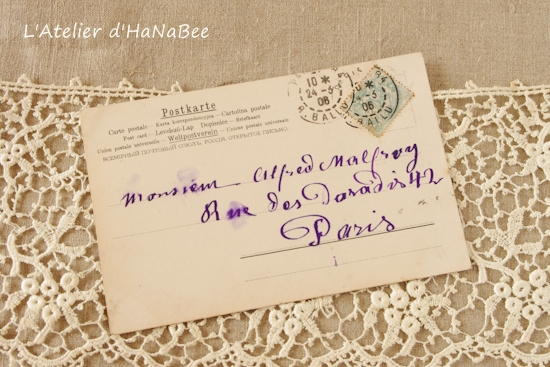 L'Atelier d'HaNaBee
Postkarte
Carte postale — Karta korespondencyjna — Cartolina postale
Post card — Levelezö-Lap — Dopisnice — Briefkaart
Union postale universelle — Weltpostverein — Unione postale
ВСЕМІРНЫЙ ПОЧТОВЫЙ СОЮЗЪ, РОССІЯ, ОТКРЫТОЕ ПИСЬМО.
10 *
24 - 3
06
Monsieur Alfred Malfroy
Rue des 42
Paris